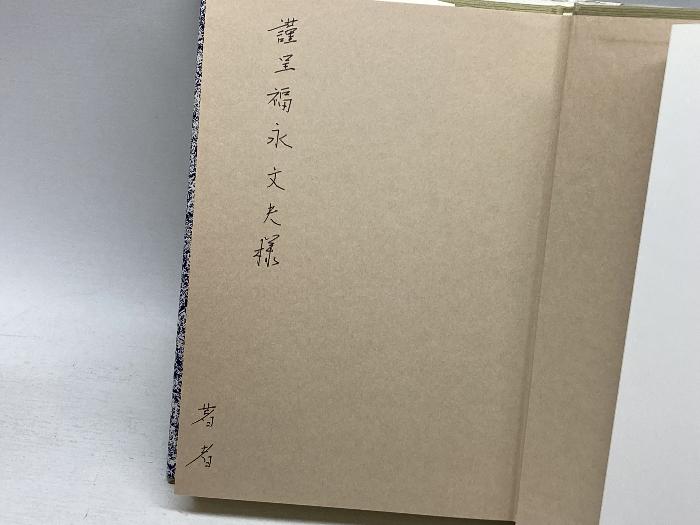 謹呈福永文夫様
著者